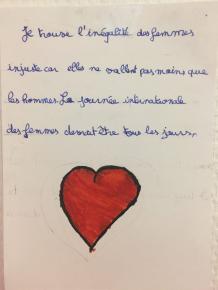 Je trouve l'inégalité des femmes
injuste car elles ne vallent pas moins que
les hommes. La journée internationale
des femmes devrait être tous les jours.